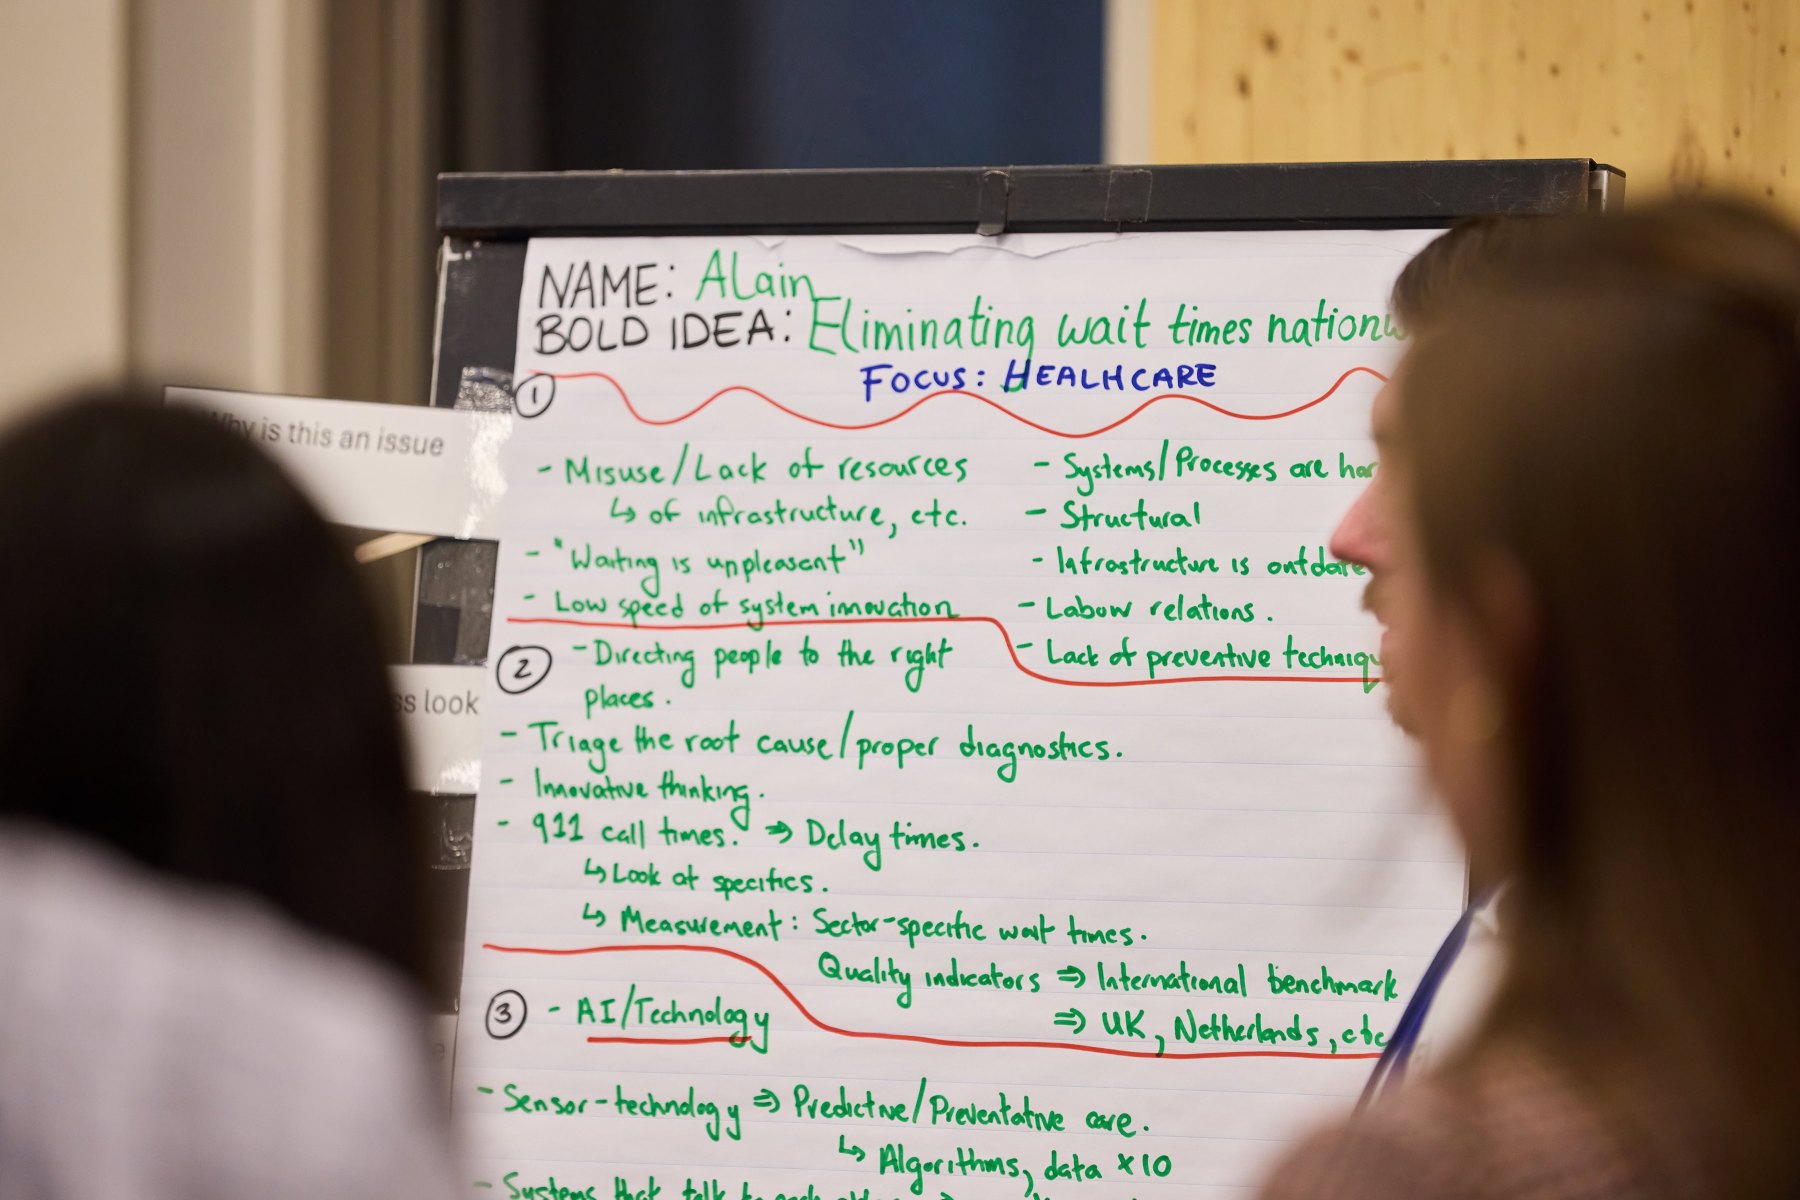 NAME: ALain
BOLD IDEA: Eliminating wait times
FOCUS: HEALHCARE
1
- Misuse/Lack of resources
↳ of infrastructure, etc.
- "Waiting is unpleasant"
- Low speed of system innovation
- Systems/Processes are
- Structural
- Infrastructure is
- Labour relations.
- Lack of preventive
2
- Directing people to the right
places.
- Triage the root cause/proper diagnostics.
- Innovative thinking.
- 911 call times. ⇒ Delay times.
↳ Look at specifics.
↳ Measurement: Sector-specific wait times.
Quality indicators ⇒ International benchmark
⇒ UK, Netherlands, etc
3
- AI/Technology
- Sensor-technology ⇒ Predictive/Preventative care.
↳ Algorithms, data x10
- Systems that talk to each
Why is this an issue
look